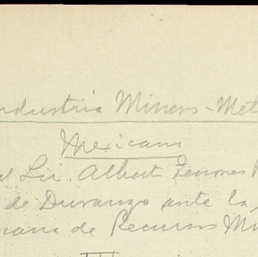 Industria Minero-Met
Mexicana
el Lic. Albert Terrones
de Durango ante la
icana de Recursos Mi